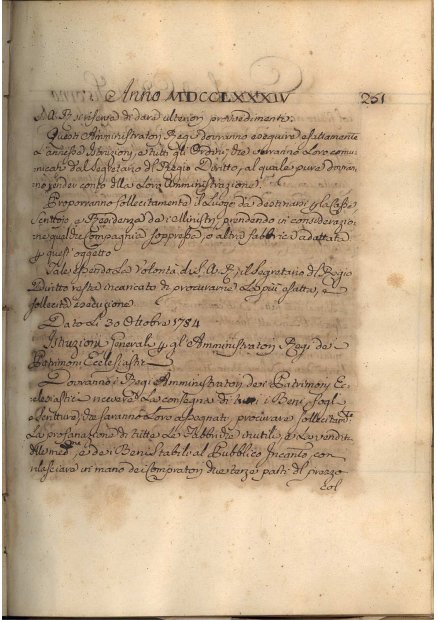 Anno MDCCLXXXIV 251
S. A. R. si riserva di dare ulteriori provvedimenti.
Questi Amministratori Regi dovranno eseguire esattamente
l'annesse Istruzioni, e tutti gli Ordini, che saranno loro comu-
nicati dal Segretario di Regio Diritto, al quale pure dovran-
no render conto della loro Amministrazione.
Proporranno sollecitamente il luogo da destinarsi p. la Cassa
Scrittoio, e Residenza dei Ministri, prendendo in considerazio-
ne qualche Compagnia soppressa, o altra fabbrica adattata
p. quest'oggetto
Tale essendo la volontà di S. A. R., il Segretario di Regio
Diritto resta incaricato di procurarne la più esatta, e
sollecita esecuzione
Dato li 30 Ottobre 1784
Istruzioni Generali p. gl'Amministratori Regi de
Patrimoni Ecclesiastici
Dovranno i Regi Amministratori dei Patrimoni Ec-
clesiastici ricevere la consegna di tutti i Beni, fogli
e scritture, che saranno loro assegnati, procurare sollecitam.te
la profanazione di tutte le Fabbriche inutili, e la vendita
delle med.me, e dei Beni stabili al Pubblico Incanto, con
rilasciare in mano dei Compratori due terze parti del prezzo
col